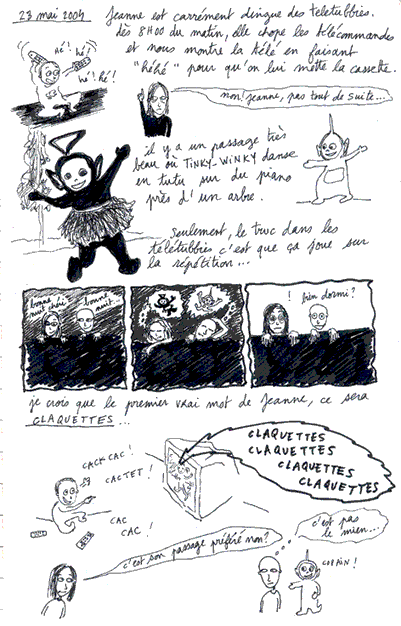 23 mai 2004
Jeanne est carrément dingue des télétubbies.
dès 8H00 du matin, elle chope les télécommandes
et nous montre la télé en faisant
"héhé" pour qu'on lui mette la cassette.
hé! hé!
hé! hé!
non! Jeanne, pas tout de suite...
il y a un passage très
beau où TiNKY-WiNKY danse
en tutu sur du piano
près d'un arbre.
Seulement, le truc dans les
télétubbies c'est que ça joue sur
la répétition...
bonne nuit chéri
bonne nuit...
! bien dormi?
je crois que le premier vrai mot de Jeanne, ce sera
CLAQUETTES...
CLAQUETTES
CLAQUETTES
CLAQUETTES
CLAQUETTES
CACKCAC!
CACTET!
CAC
CAC!
c'est son passage préféré non?
c'est pas
le mien...
COPAIN!